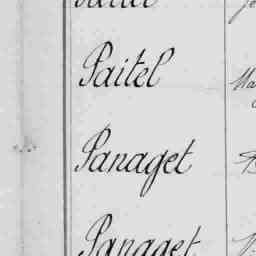 Paitel
Panaget
Panaget